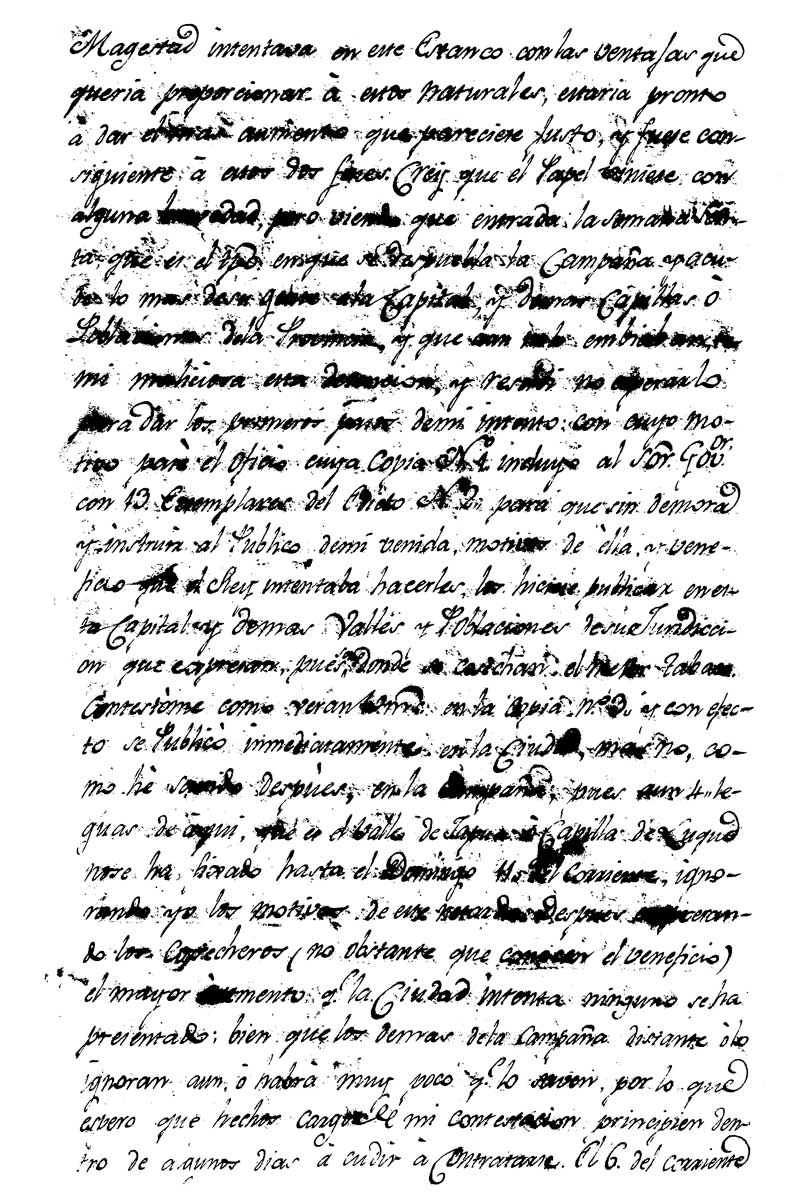 Magestad intentava en este Estanco con las ventajas que
queria proporcionar à estos naturales, estaria pronto
à dar el mas aumento que pareciese Justo, y fuese con-
siguiente à estos dos fines. Crey que el Papel viniese con
alguna brevedad, pero viendo que entrada la semana San-
ta, que es el tpō. en que se despuebla la Campaña y acu-
de lo mas desu gente ala Capital, y demas Capillas ò
Poblaciones dela Provincia, y que aun no lo embiaban,
mi maliciosa esta detencion, y resolvi no esperarlo
para dar los primeros pasos demi intento: con cuyo mo-
tivo pasè el Oficio cuya Copia Nº 1. incluyo al Sōr. Govōr.
con 13. Exemplares del Edicto Nº 2. para que sin demora
y instruir al Publico demi venida, motivos de èlla, y vene-
ficio que el Rey intentaba hacerles, los hiciese publicar en es-
ta Capital y demas Valles y Poblaciones desu Jurisdicci-
on que expresan, pues, donde se cosechan el mejor tabaco.
Contestòme como veran en la Copia nº 3. y con efec-
to se Publicò inmediatamente en la Ciudad, mas no, co-
mo hè savido despùes, en la Campaña, pues aun 4" le-
guas de aqui, que es el Valle de Tapua ò Capilla de Luque
nose ha hecho hasta el Domingo 11. del Corriente, igno-
rando yo los motivos de este retardo. despues
do los Cosechèros (no obstante que conocen el veneficio)
el mayor aumento qᵉ la Ciudad intenta ninguno se ha
presentado: bien que los demas dela Campaña distante ò lo
ignoran aun, ò habrà muy poco qᵉ lo saven, por lo que
espero que hechos cargo de mi contestacion principien den-
tro de algunos dias à cudir à Contratarse. El 6. del corriente